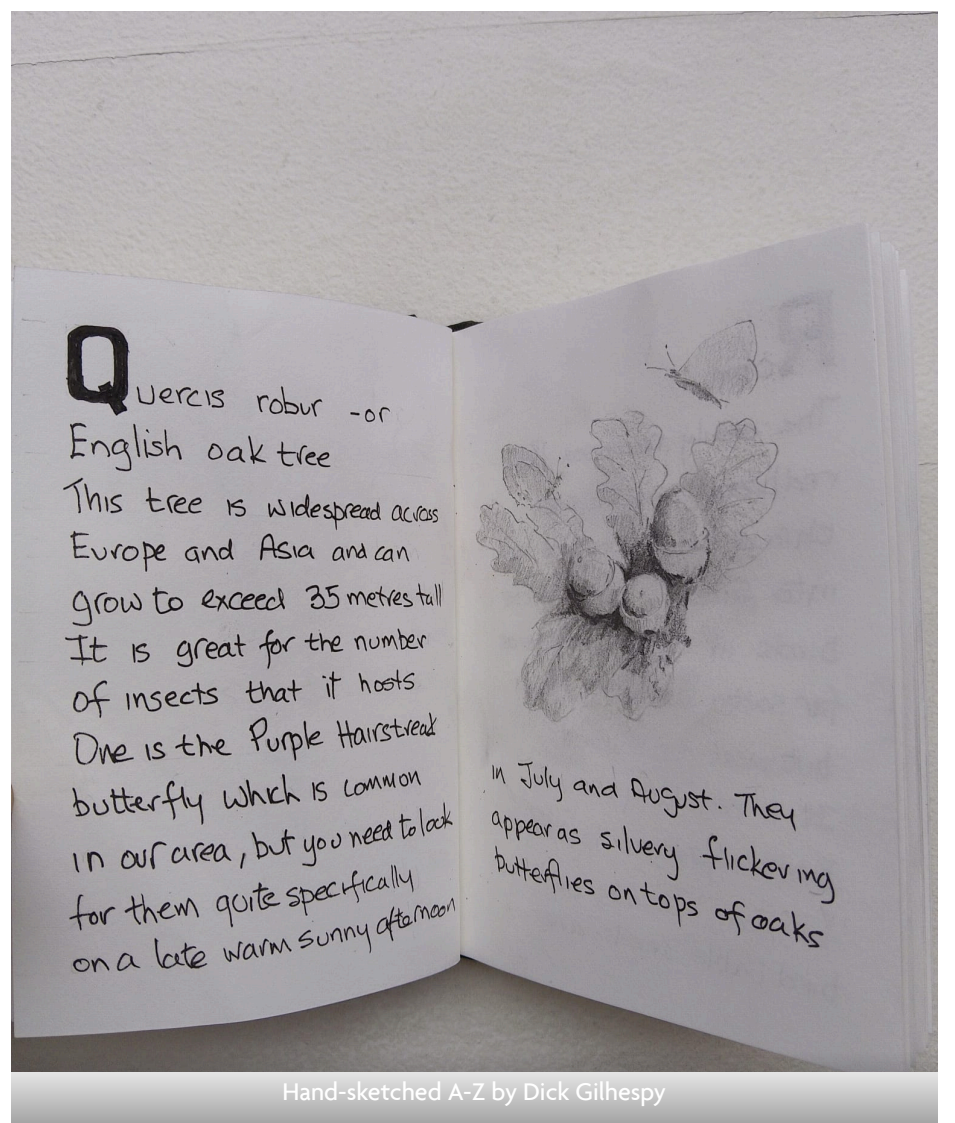 Quercis robur - or
English oak tree
This tree is widespread across
Europe and Asia and can
grow to exceed 35 metres tall
It is great for the number
of insects that it hosts
One is the Purple Hairstreak
butterfly which is common
in our area, but you need to look
for them quite specifically
on a late warm sunny afternoon
in July and August. They
appear as silvery flickering
butterflies on tops of oaks
Hand-sketched A-Z by Dick Gilhespy